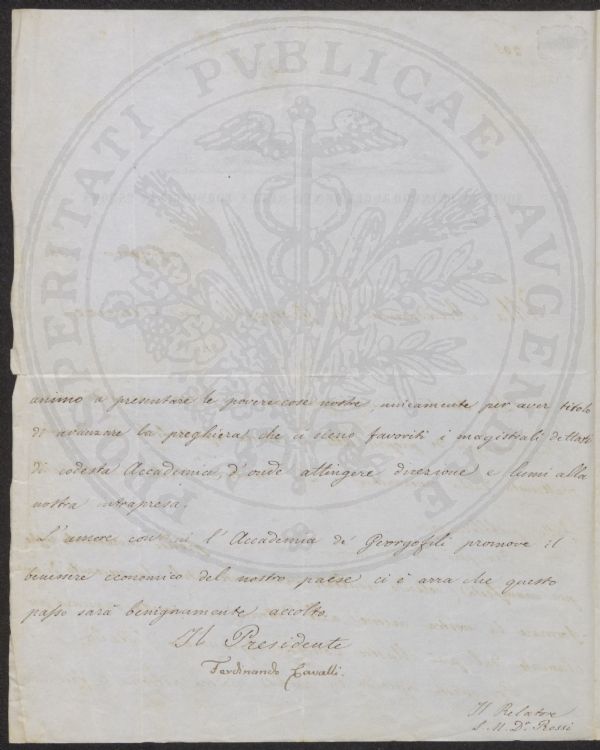 PROSPERITATI PVBLICAE AVGENDAE
animo a presentare le povere cose nostre unicamente per aver titolo
di avanzare la preghiera che ci sieno favoriti i magistrali dettati
di codesta Accademia, d'onde attingere direzione e lumi alla
nostra intrapresa.
L'amore con cui l'Accademia de' Georgofili promove il
benessere economico del nostro paese ci è arra che questo
passo sarà benignamente accolto.
Il Presidente
Ferdinando Cavalli.
Il Relatore
L. M. Dr. Rossi